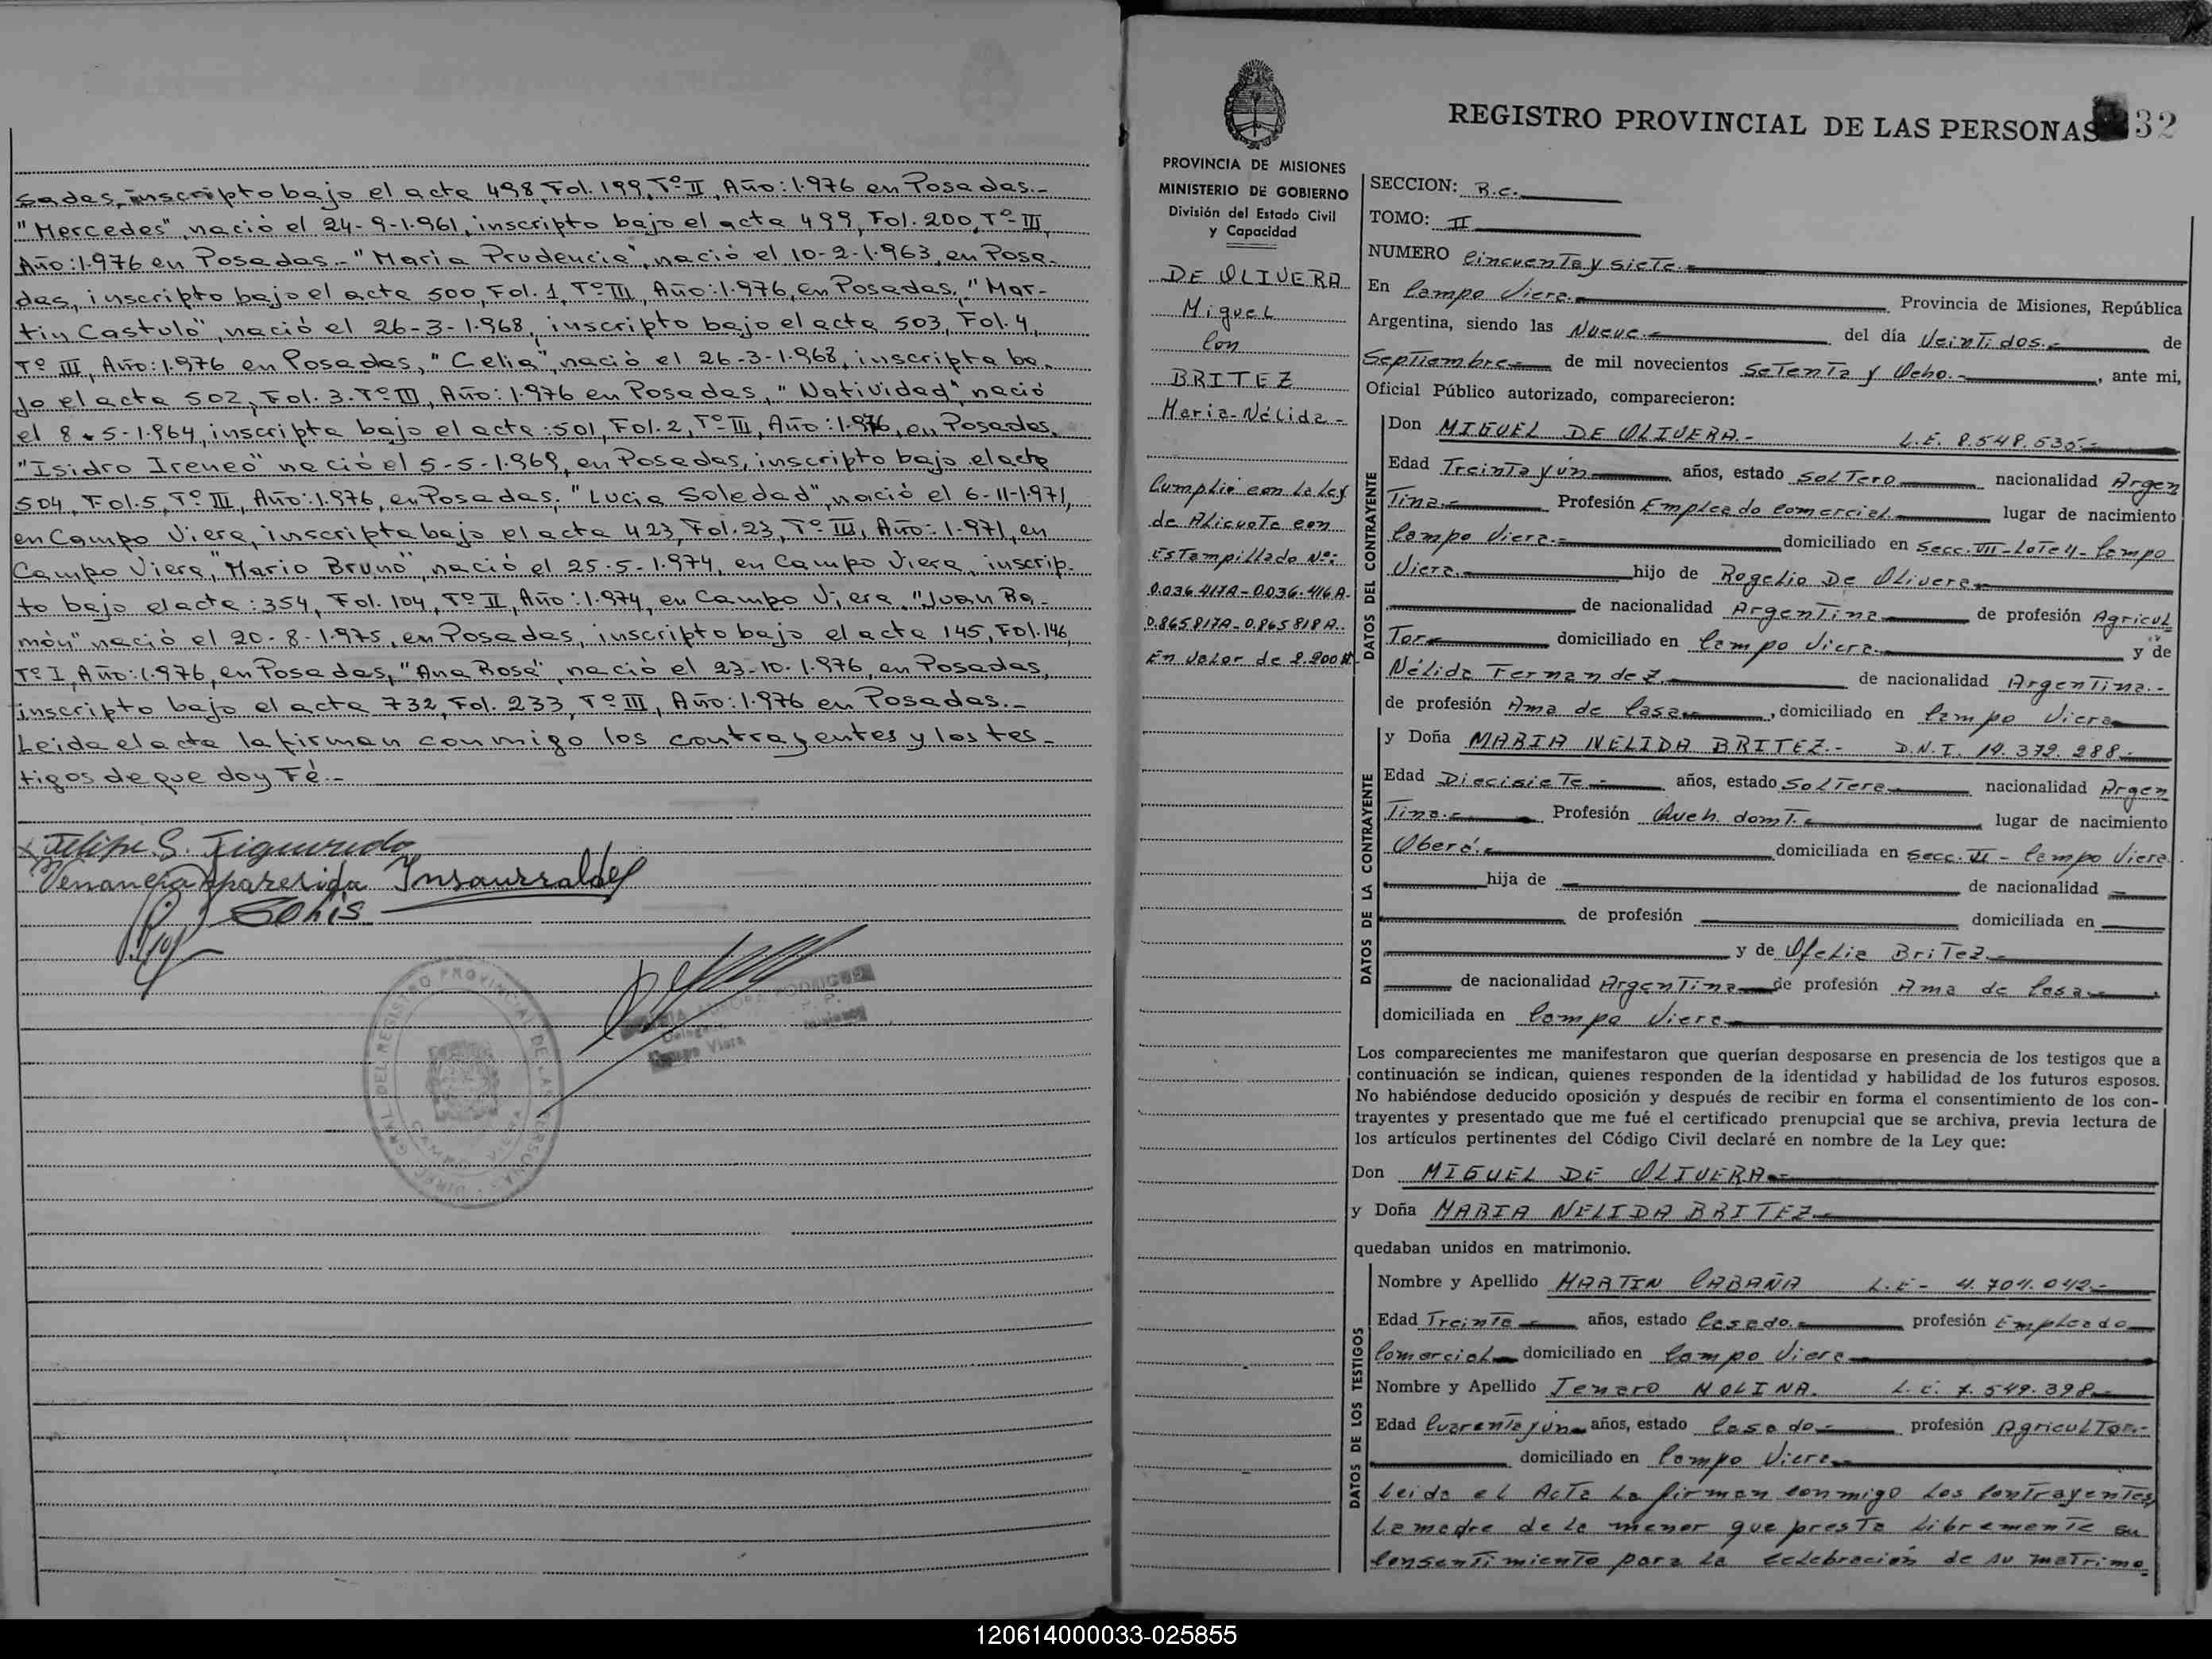 sadas, inscripto bajo el acta 498, Fol. 199, Tº II, Año: 1.976 en Posadas.-
"Mercedes", nació el 24-9-1.961, inscripto bajo el acta 499, Fol. 200, Tº III,
Año: 1.976 en Posadas.- "Maria Prudencia", nació el 10-2-1.963, en Posa-
das, inscripto bajo el acta 500, Fol. 1, Tº III, Año: 1.976, en Posadas, "Mar-
tin Castulo", nació el 26-3-1.968, inscripto bajo el acta 503, Fol. 4,
Tº III, Año: 1.976 en Posadas, "Celia", nació el 26-3-1.968, inscripta ba-
jo el acta 502, Fol. 3. Tº III, Año: 1.976 en Posadas, "Natividad", nació
el 8-5-1.964, inscripta bajo el acta: 501, Fol. 2, Tº III, Año: 1.976, en Posadas.
"Isidro Ireneo" nació el 5-5-1.969, en Posadas, inscripto bajo el acta
504, Fol. 5, Tº III, Año: 1.976, en Posadas; "Lucia Soledad", nació el 6-11-1.971,
en Campo Viera, inscripta bajo el acta 423, Fol. 23, Tº III, Año: 1.971, en
Campo Viera, "Mario Bruno", nació el 25-5-1.974, en Campo Viera, inscrip-
to bajo el acta: 354, Fol. 104, Tº II, Año: 1.974, en Campo Viera, "Juan Ra-
món" nació el 20-8-1.975, en Posadas, inscripto bajo el acta 145, Fol. 146,
Tº I, Año: 1.976, en Posadas, "Ana Rosa", nació el 23-10-1.976, en Posadas,
inscripto bajo el acta 732, Fol. 233, Tº III, Año: 1.976 en Posadas.-
Leida el acta la firman conmigo los contrayentes y los tes-
tigos de que doy Fé.-
x Felipe S. Figueredo
Venancia Aparesida Insaurralde
DIREC. GRAL. DEL REGISTRO PROVINCIAL DE LAS PERSONAS
CAMPO VIERA
Campo Viera
REGISTRO PROVINCIAL DE LAS PERSONAS 32
PROVINCIA DE MISIONES
MINISTERIO DE GOBIERNO
División del Estado Civil
y Capacidad
DE OLIVERA
Miguel
Con
BRITEZ
Maria-Nélida-
Cumplió con la Ley
de Alicuota con
Estampillado Nº:
0.036.417A-0.036.416A-
0.865.817A-0.865.818A.
En valor de 2.200 $-
SECCION: B.C.
TOMO: II
NUMERO Cincuenta y siete.-
En Campo Viera.- Provincia de Misiones, República
Argentina, siendo las Nueve.- del día Veintidos.- de
Septiembre.- de mil novecientos Setenta y Ocho.-, ante mi,
Oficial Público autorizado, comparecieron:
DATOS DEL CONTRAYENTE
Don MIGUEL DE OLIVERA.- L.E. 8.548.535-
Edad Treinta y ún años, estado Soltero nacionalidad Argen
Tina.- Profesión Empleado comercial lugar de nacimiento
Campo Viera.- domiciliado en Secc. VII-Lote 4-Campo
Viera hijo de Rogelio De Olivera
de nacionalidad Argentina de profesión Agricul
Tor domiciliado en Campo Viera y de
Nélida Fernandez.- de nacionalidad Argentina.-
de profesión Ama de Casa, domiciliado en Campo Viera
DATOS DE LA CONTRAYENTE
y Doña MARIA NELIDA BRITEZ.- D.N.I. 14.372.288-
Edad Diecisiete años, estado Soltera nacionalidad Argen
Tina.- Profesión Queh. domt.- lugar de nacimiento
Oberá.- domiciliada en Secc. VI - Campo Viera.
hija de de nacionalidad
de profesión domiciliada en
y de Ofelia Britez.-
de nacionalidad Argentina de profesión Ama de Casa
domiciliada en Campo Viera
Los comparecientes me manifestaron que querían desposarse en presencia de los testigos que a
continuación se indican, quienes responden de la identidad y habilidad de los futuros esposos.
No habiéndose deducido oposición y después de recibir en forma el consentimiento de los con-
trayentes y presentado que me fué el certificado prenupcial que se archiva, previa lectura de
los artículos pertinentes del Código Civil declaré en nombre de la Ley que:
Don MIGUEL DE OLIVERA.-
y Doña MARIA NELIDA BRITEZ.-
quedaban unidos en matrimonio.
DATOS DE LOS TESTIGOS
Nombre y Apellido MARTIN CABAÑA L.E- 4.704.042.-
Edad Treinta años, estado Casado.- profesión Empleado
Comercial domiciliado en Campo Viera
Nombre y Apellido Jenaro MOLINA. L.E. 7.549.398-
Edad Cuarenta y ún años, estado Casado profesión Agricultor.-
domiciliado en Campo Viera
Leida el Acta la firman conmigo los Contrayentes,
La madre de la menor que presta Libremente su
Consentimiento para la celebración de su matrimo
120614000033-025855